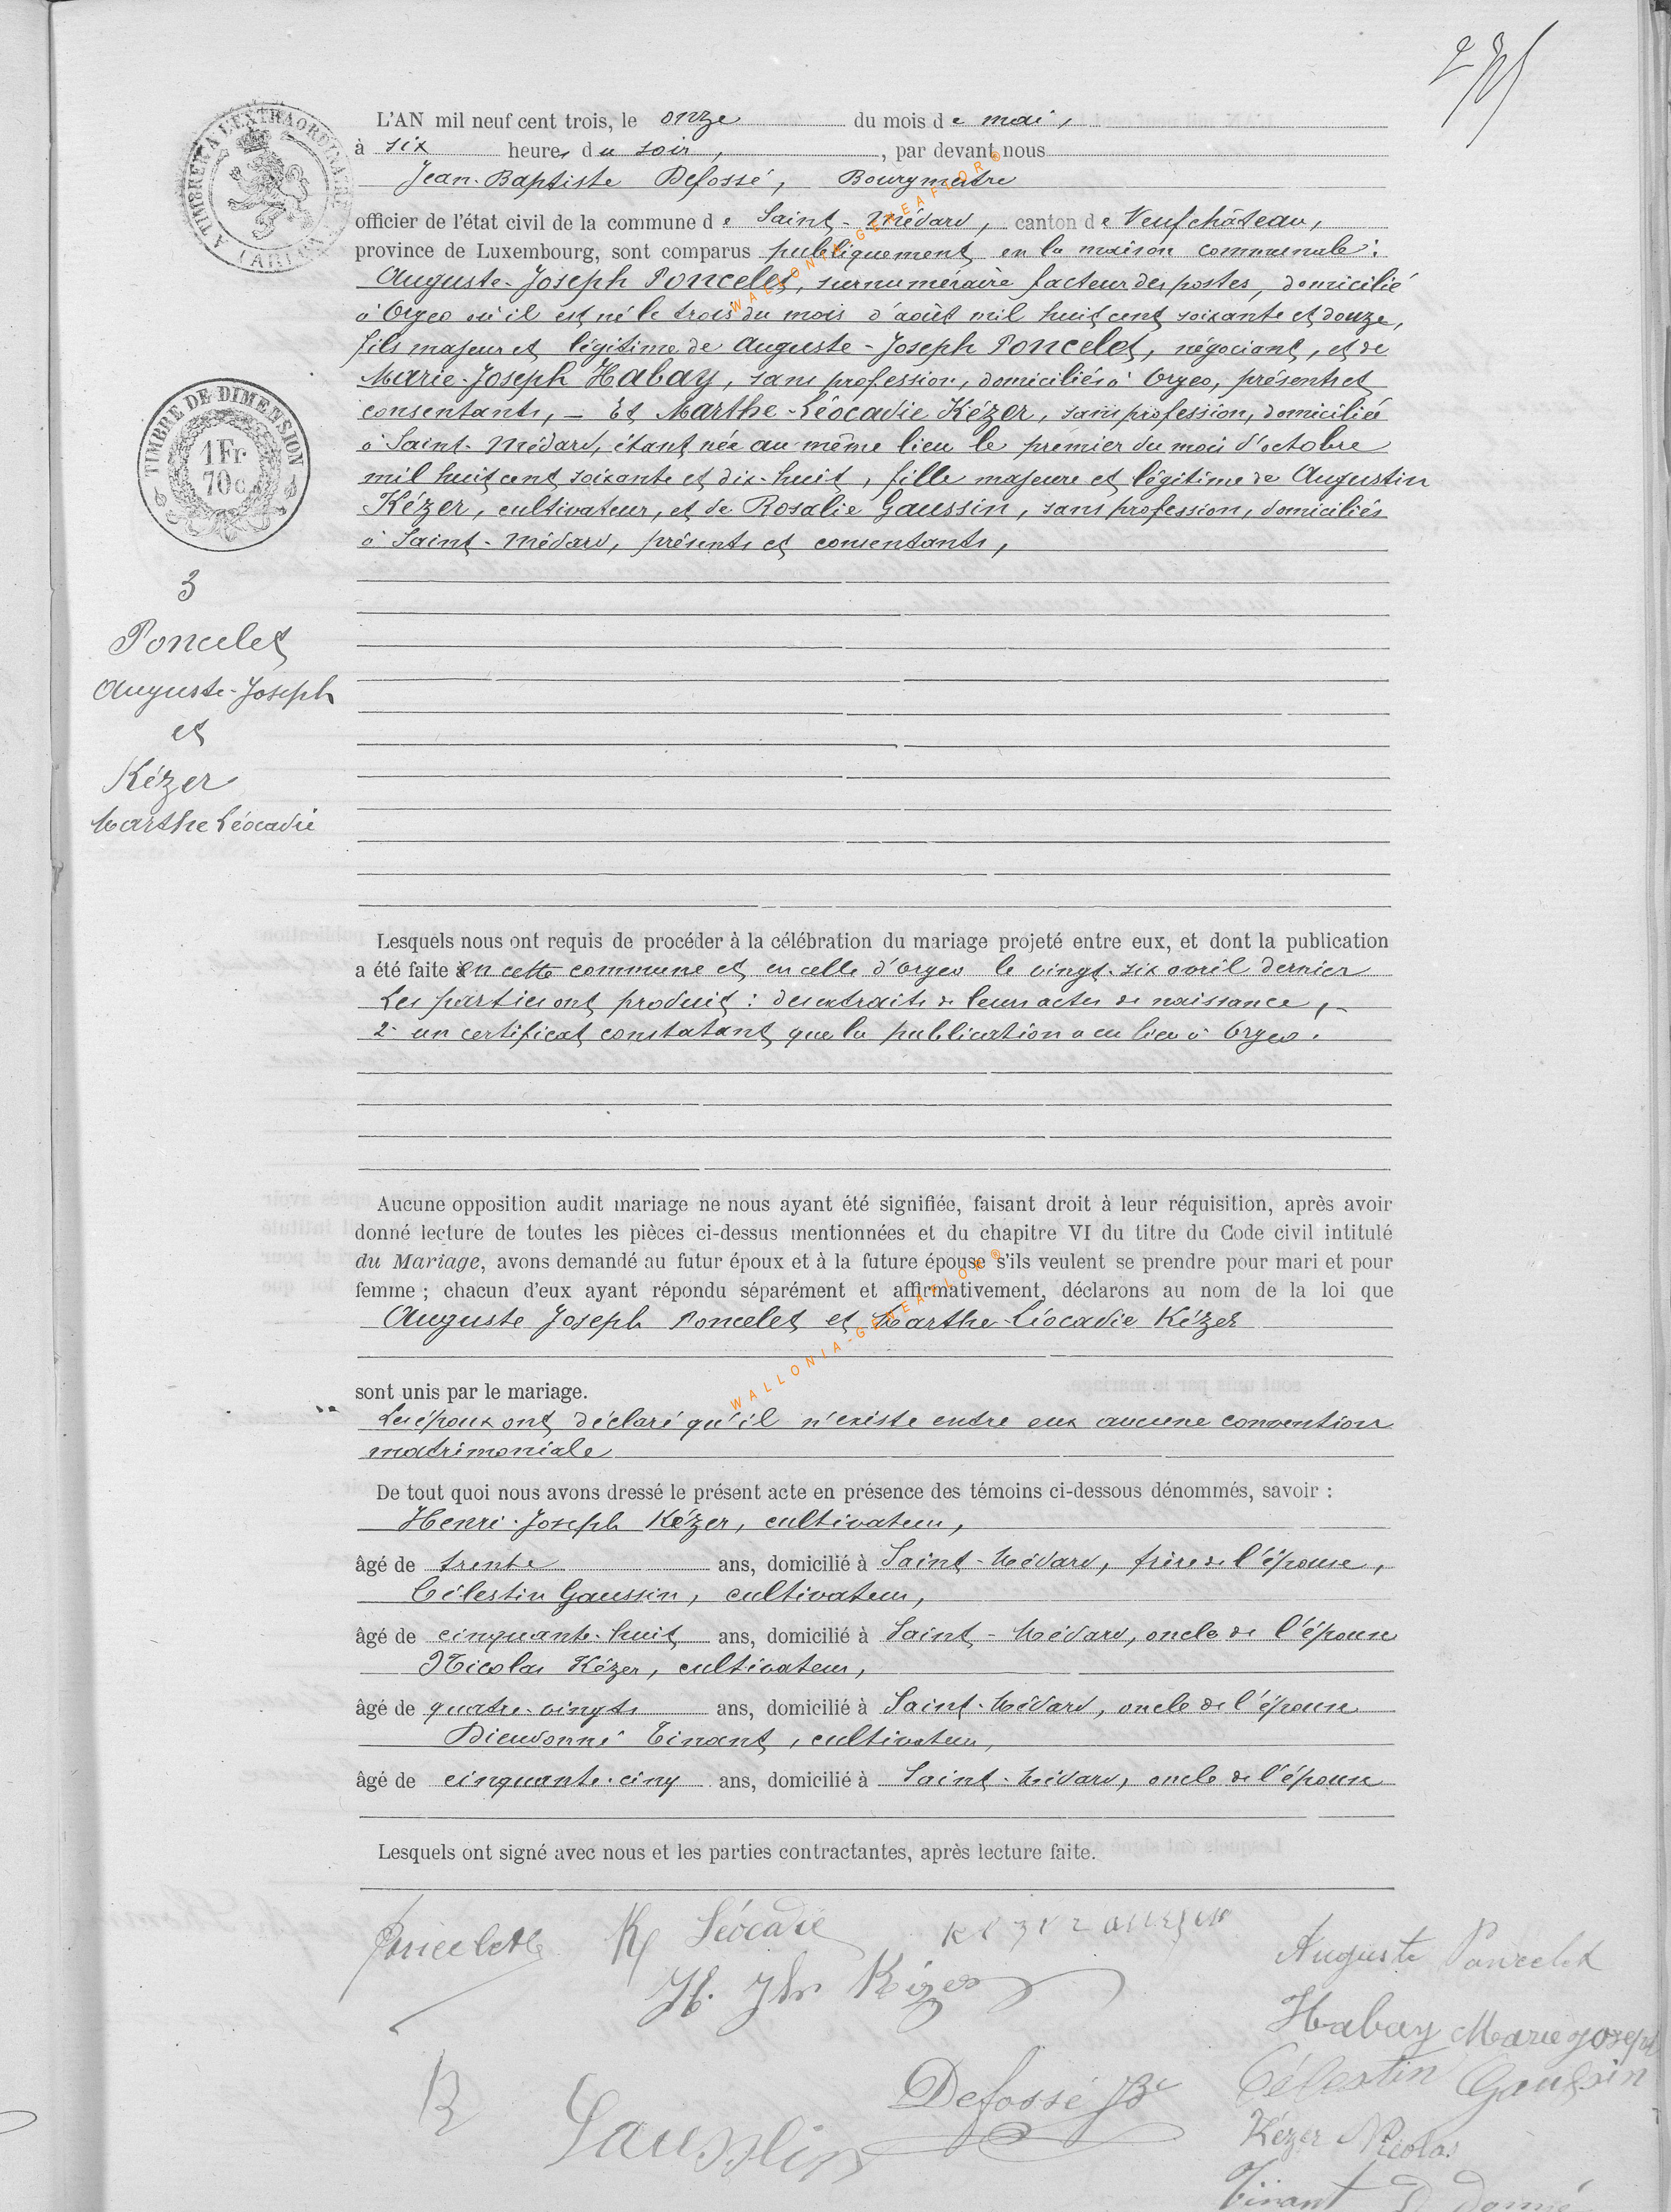 L'AN mil neuf cent trois, le onze du mois de mai,
à six heures du soir, , par devant nous
Jean-Baptiste Defossé, Bourgmestre
officier de l'état civil de la commune de Saint-Médard, canton de Neufchâteau,
province de Luxembourg, sont comparus publiquement en la maison communale :
Auguste-Joseph Poncelet, surnuméraire facteur des postes, domicilié
à Orgeo où il est né le trois du mois d'août mil huit cent soixante et douze,
fils majeur et légitime de Auguste-Joseph Poncelet, négociant, et de
Marie-Joseph Habay, sans profession, domiciliés à Orgeo, présents et
consentants, — Et Marthe-Léocadie Kézer, sans profession, domiciliée
à Saint-Médard, étant née au même lieu le premier du mois d'octobre
mil huit cent soixante et dix-huit, fille majeure et légitime de Augustin
Kézer, cultivateur, et de Rosalie Gaussin, sans profession, domiciliés
à Saint-Médard, présents et consentants,
A TIMBRER A L'EXTRAORDINAIRE
(ARLON)
TIMBRE DE DIMENSION
1 Fr
70 c
3
Poncelet
Auguste-Joseph
et
Kézer
Marthe Léocadie
Lesquels nous ont requis de procéder à la célébration du mariage projeté entre eux, et dont la publication
a été faite en cette commune et en celle d'Orgeo le vingt-six avril dernier
Les parties ont produit : des extraits de leurs actes de naissance,
2° un certificat constatant que la publication a eu lieu à Orgeo.
Aucune opposition audit mariage ne nous ayant été signifiée, faisant droit à leur réquisition, après avoir
donné lecture de toutes les pièces ci-dessus mentionnées et du chapitre VI du titre du Code civil intitulé
du Mariage, avons demandé au futur époux et à la future épouse s'ils veulent se prendre pour mari et pour
femme ; chacun d'eux ayant répondu séparément et affirmativement, déclarons au nom de la loi que
Auguste Joseph Poncelet et Marthe-Léocadie Kézer
sont unis par le mariage.
Les époux ont déclaré qu'il n'existe entre eux aucune convention
matrimoniale
De tout quoi nous avons dressé le présent acte en présence des témoins ci-dessous dénommés, savoir :
Henri-Joseph Kézer, cultivateur,
âgé de trente ans, domicilié à Saint-Médard, frère de l'épouse,
Célestin Gaussin, cultivateur,
âgé de cinquante-huit ans, domicilié à Saint-Médard, oncle de l'épouse
Nicolas Kézer, cultivateur,
âgé de quatre-vingts ans, domicilié à Saint-Médard, oncle de l'épouse
Dieudonné Tinant, cultivateur,
âgé de cinquante-cinq ans, domicilié à Saint-Médard, oncle de l'épouse
Lesquels ont signé avec nous et les parties contractantes, après lecture faite.
Léocadie
Auguste Poncelet
H. Jph Kézer
Habay Marie Joseph
Defossé JB
Célestin Gaussin
R Gausslin
Kézer Nicolas
Tinant
WALLONIA-GENEAFLOR®
WALLONIA-GENEAFLOR®